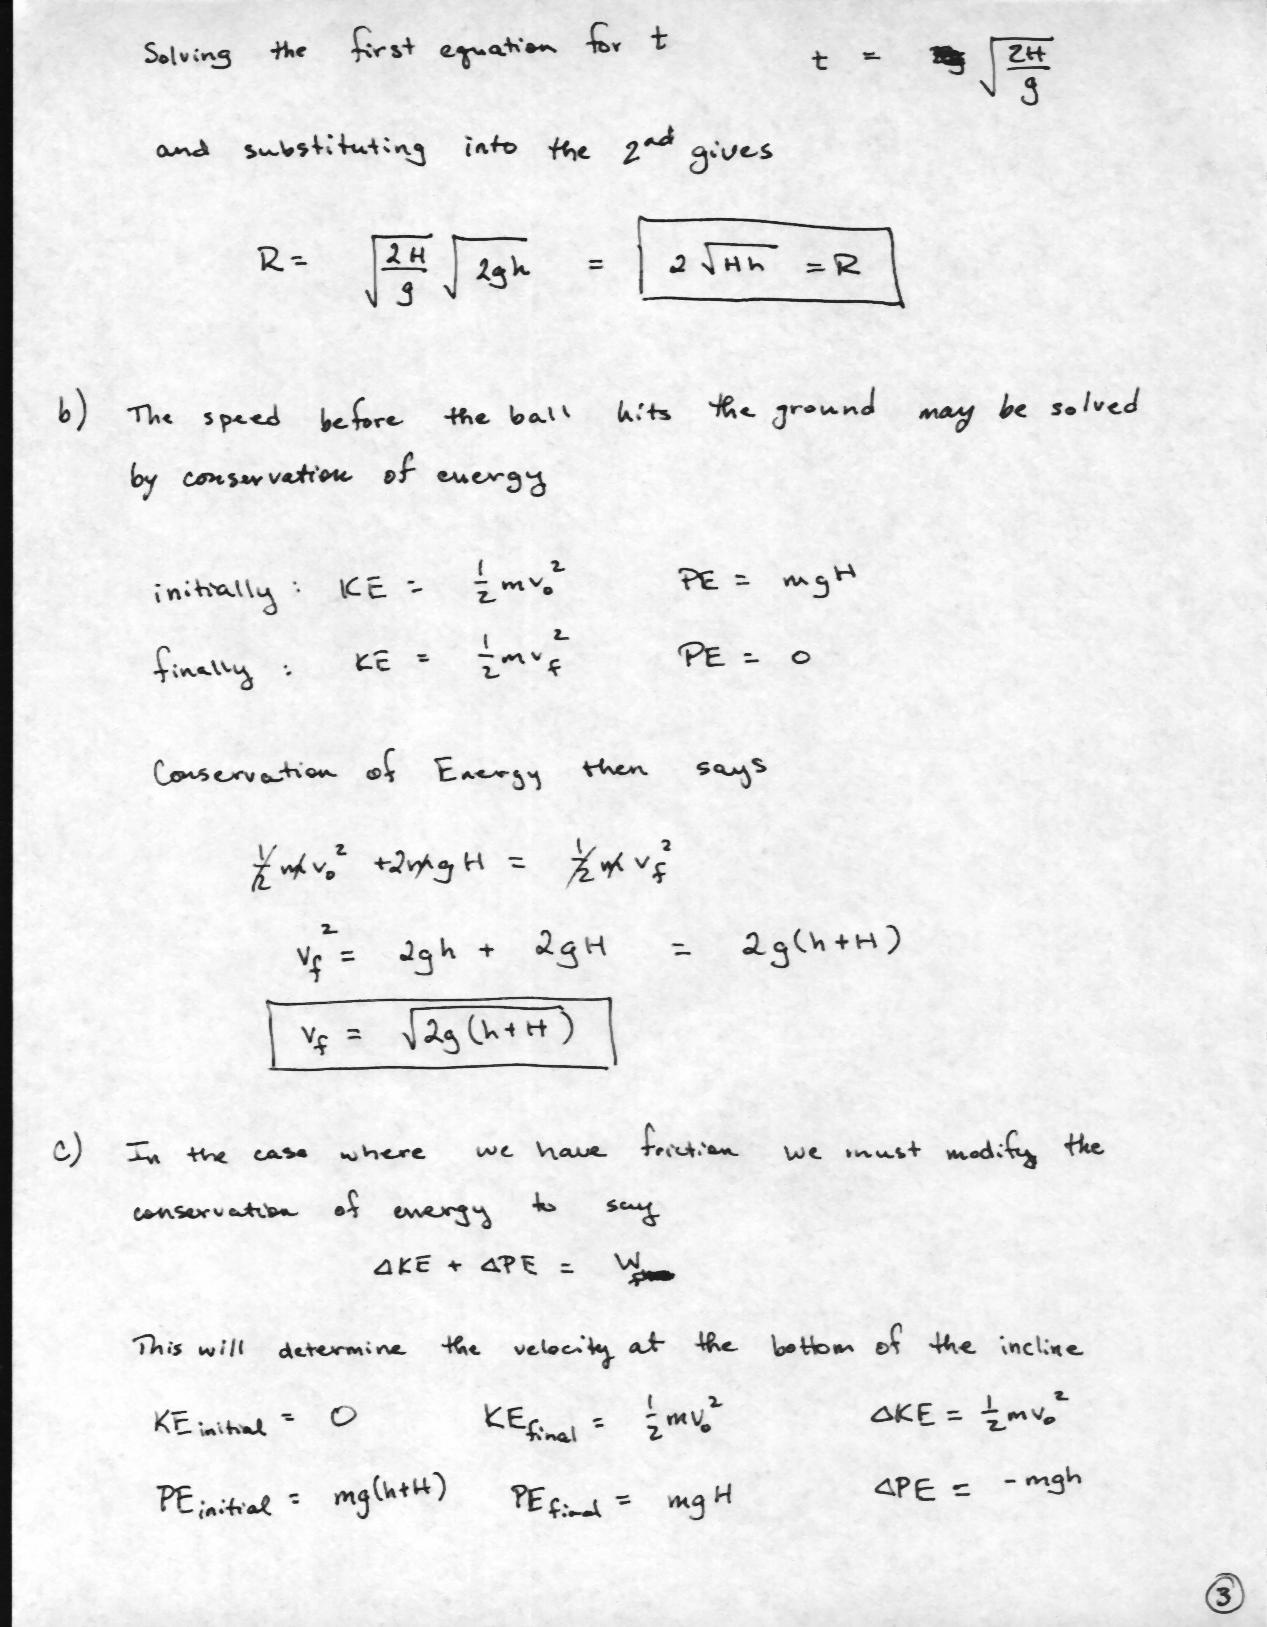 Solving the first equation for t    t = √(2H/g)
and substituting into the 2nd gives
R = √(2H/g) √(2gh) = 2√(Hh) = R
b) The speed before the ball hits the ground may be solved
by conservation of energy
initially : KE = ½mv₀²    PE = mgH
finally : KE = ½mv_f²    PE = 0
Conservation of Energy then says
½mv₀² + 2mgH = ½mv_f²
v_f² = 2gh + 2gH = 2g(h+H)
v_f = √(2g(h+H))
c) In the case where we have friction we must modify the
conservation of energy to say
ΔKE + ΔPE = W_f
This will determine the velocity at the bottom of the incline
KE initial = 0    KE final = ½mv₀²    ΔKE = ½mv₀²
PE initial = mg(h+H)    PE final = mgH    ΔPE = -mgh
3